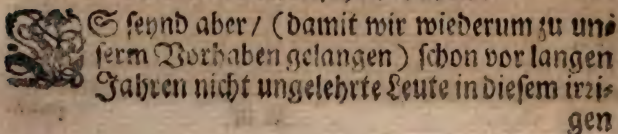 ES seynd aber / (damit wir wiederum zu un⸗
serm Vorhaben gelangen) schon vor langen
Jahren nicht ungelehrte Leute in diesem irri⸗
gen